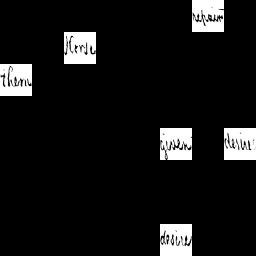 repair
Horse
them
given desire
desires